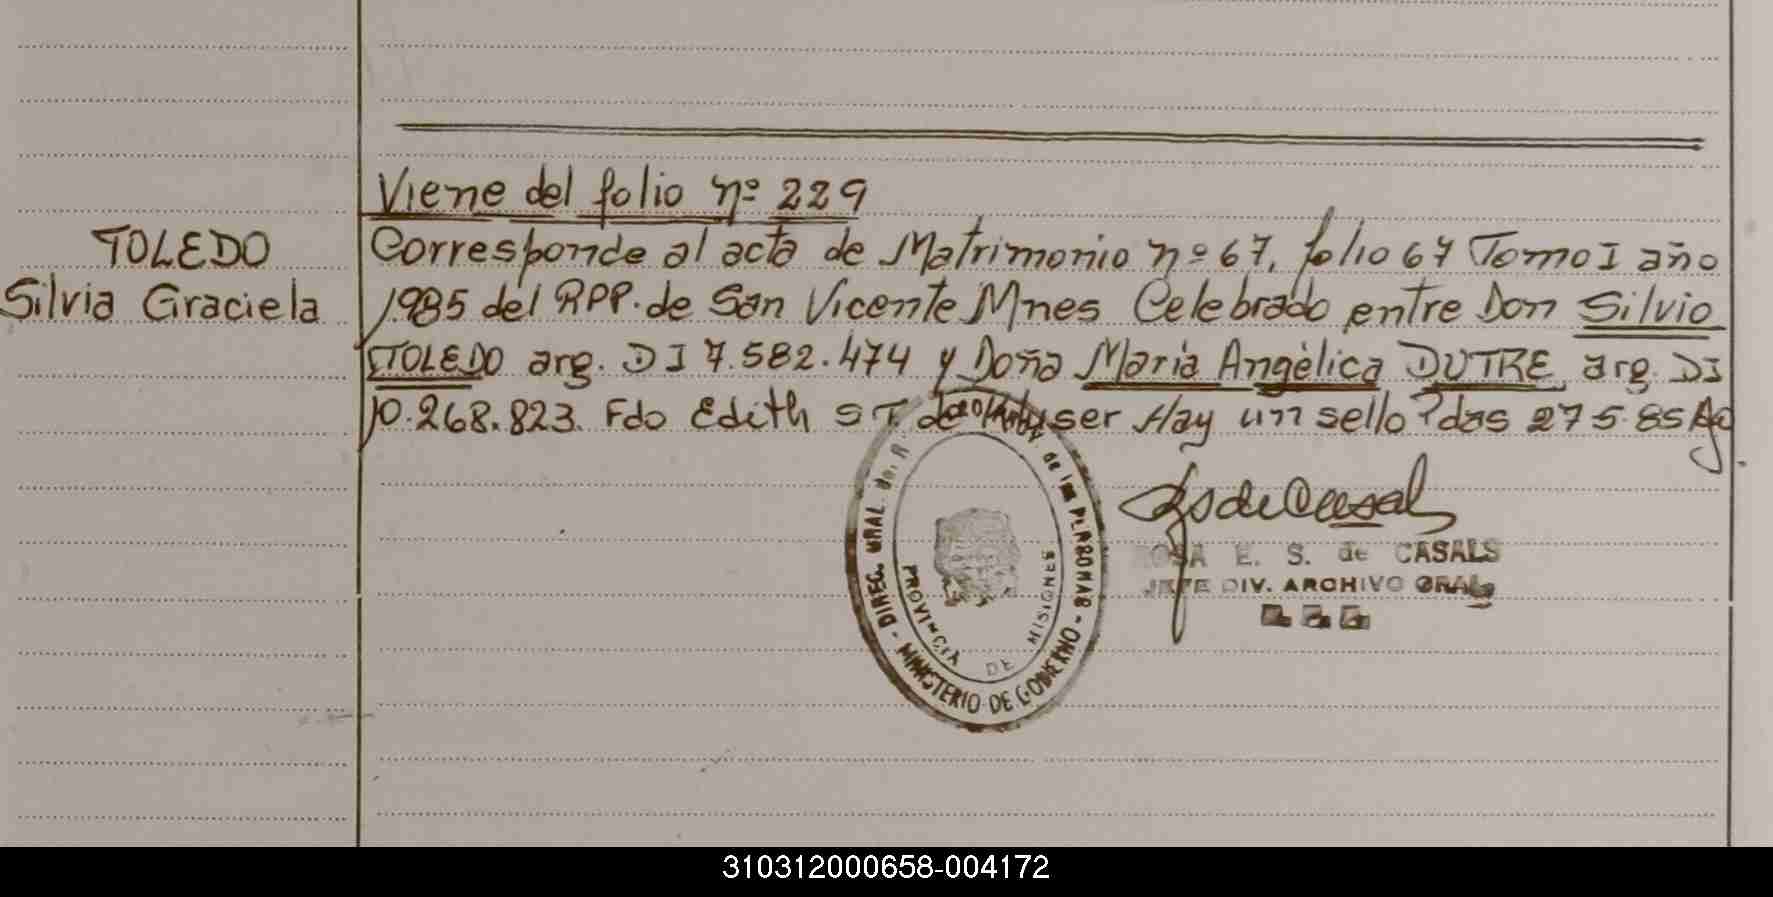 Viene del folio nº 229
TOLEDO
Silvia Graciela
Corresponde al acta de Matrimonio nº 67, folio 67 Tomo I año
1.985 del RPP. de San Vicente Mnes Celebrado entre Don Silvio
TOLEDO arg. DI 7.582.474 y Doña María Angélica DUTRE arg. DI
10.268.823. Fdo Edith S T. de ser Hay un sello Pdas 27 5.85
DIREC. GRAL. del R de las PERSONAS - MINISTERIO DE GOBIERNO -
PROVINCIA DE MISIONES
ROSA E. S. de CASALS
JEFE DIV. ARCHIVO GRAL.
310312000658-004172